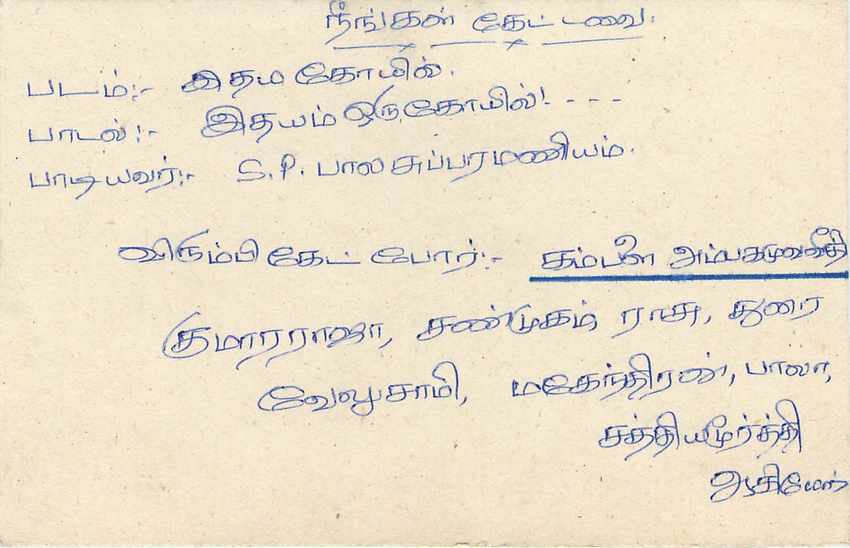 நீங்கள் கேட்டவை.
படம்:- இதய கோயில்.
பாடல்:- இதயம் ஒரு கோயில்! - - -
பாடியவர்:- S.P. பாலசுப்பரமணியம்.
விரும்பி கேட்போர்:- கம்பளை அம்பகமுவவீதி
குமாரராஜா, சண்முகம், ராசு, துரை
வேலுசாமி, மகேந்திரன், பாலா,
சத்தியமூர்த்தி
ஆகியோர்